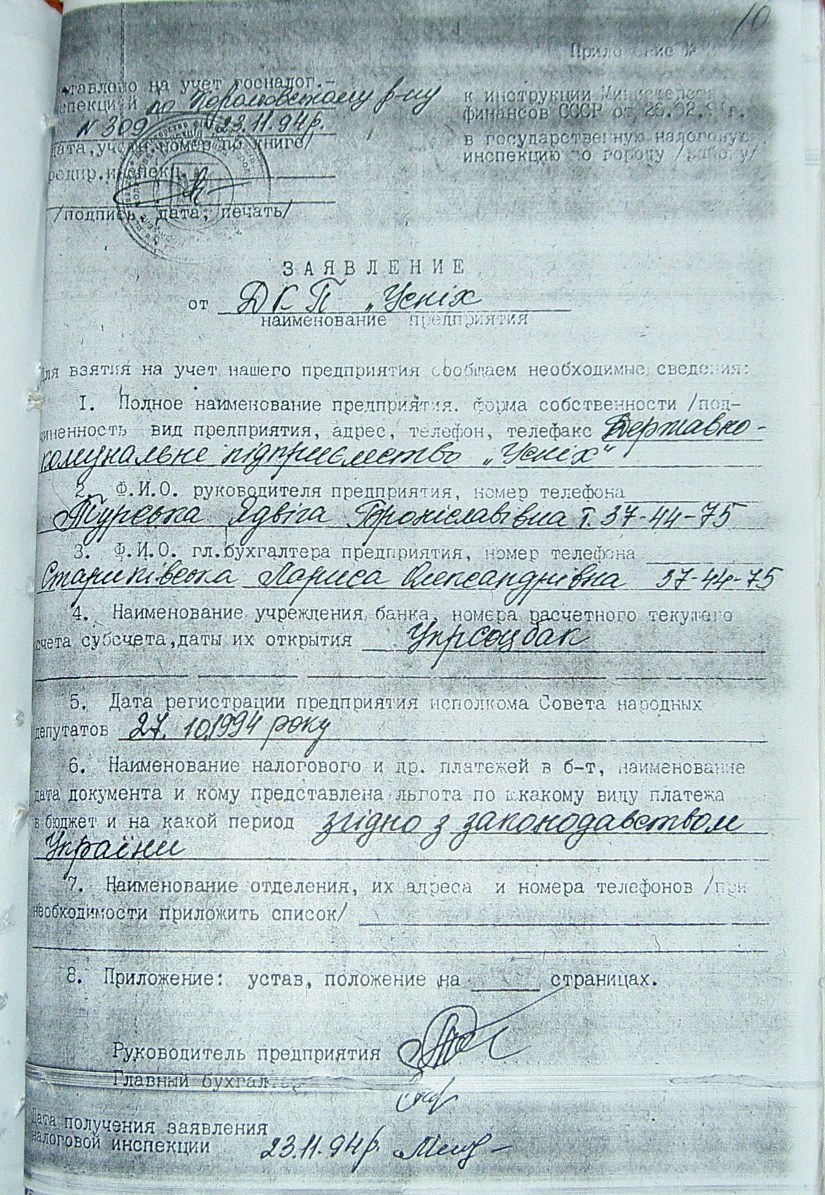 10
Приложение №
тавлено на учет госналог.-
пекцией по Королевскому р-ну
к инструкции Министерства
N 309 23.11.94р.
финансов СССР от 26.02.9 г.
дата, учетн. номер по книге/
в государственную налоговую
инспекцию по городу /району/
/подпись, дата, печать/
ЗАЯВЛЕНИЕ
от ДКП „Успіх
наименование предприятия
Для взятия на учет нашего предприятия сообщаем необходимые сведения:
1. Полное наименование предприятия. форма собственности /под-
чиненность вид предприятия, адрес, телефон, телефакс Державно-
комунальне підприємство „Успіх"
2. Ф.И.О. руководителя предприятия, номер телефона
Турська Ядвіга Броніславівна т. 37-44-75
3. Ф.И.О. гл.бухгалтера предприятия, номер телефона
Лариса Олександрівна 37-44-75
4. Наименование учреждения банка, номера расчетного текущего
счета субсчета,даты их открытия Укрсоцбак
5. Дата регистрации предприятия исполкома Совета народных
депутатов 27.10.1994 року
6. Наименование налогового и др. платежей в б-т, наименование
дата документа и кому представлена льгота по какому виду платежа
в бюджет и на какой период згідно з законодавством
України
7. Наименование отделения, их адреса и номера телефонов /при
необходимости приложить список/
8. Приложение: устав, положение на ______ страницах.
Руководитель предприятия
Главный бухгалтер
Дата получения заявления
налоговой инспекции 23.11.94р.